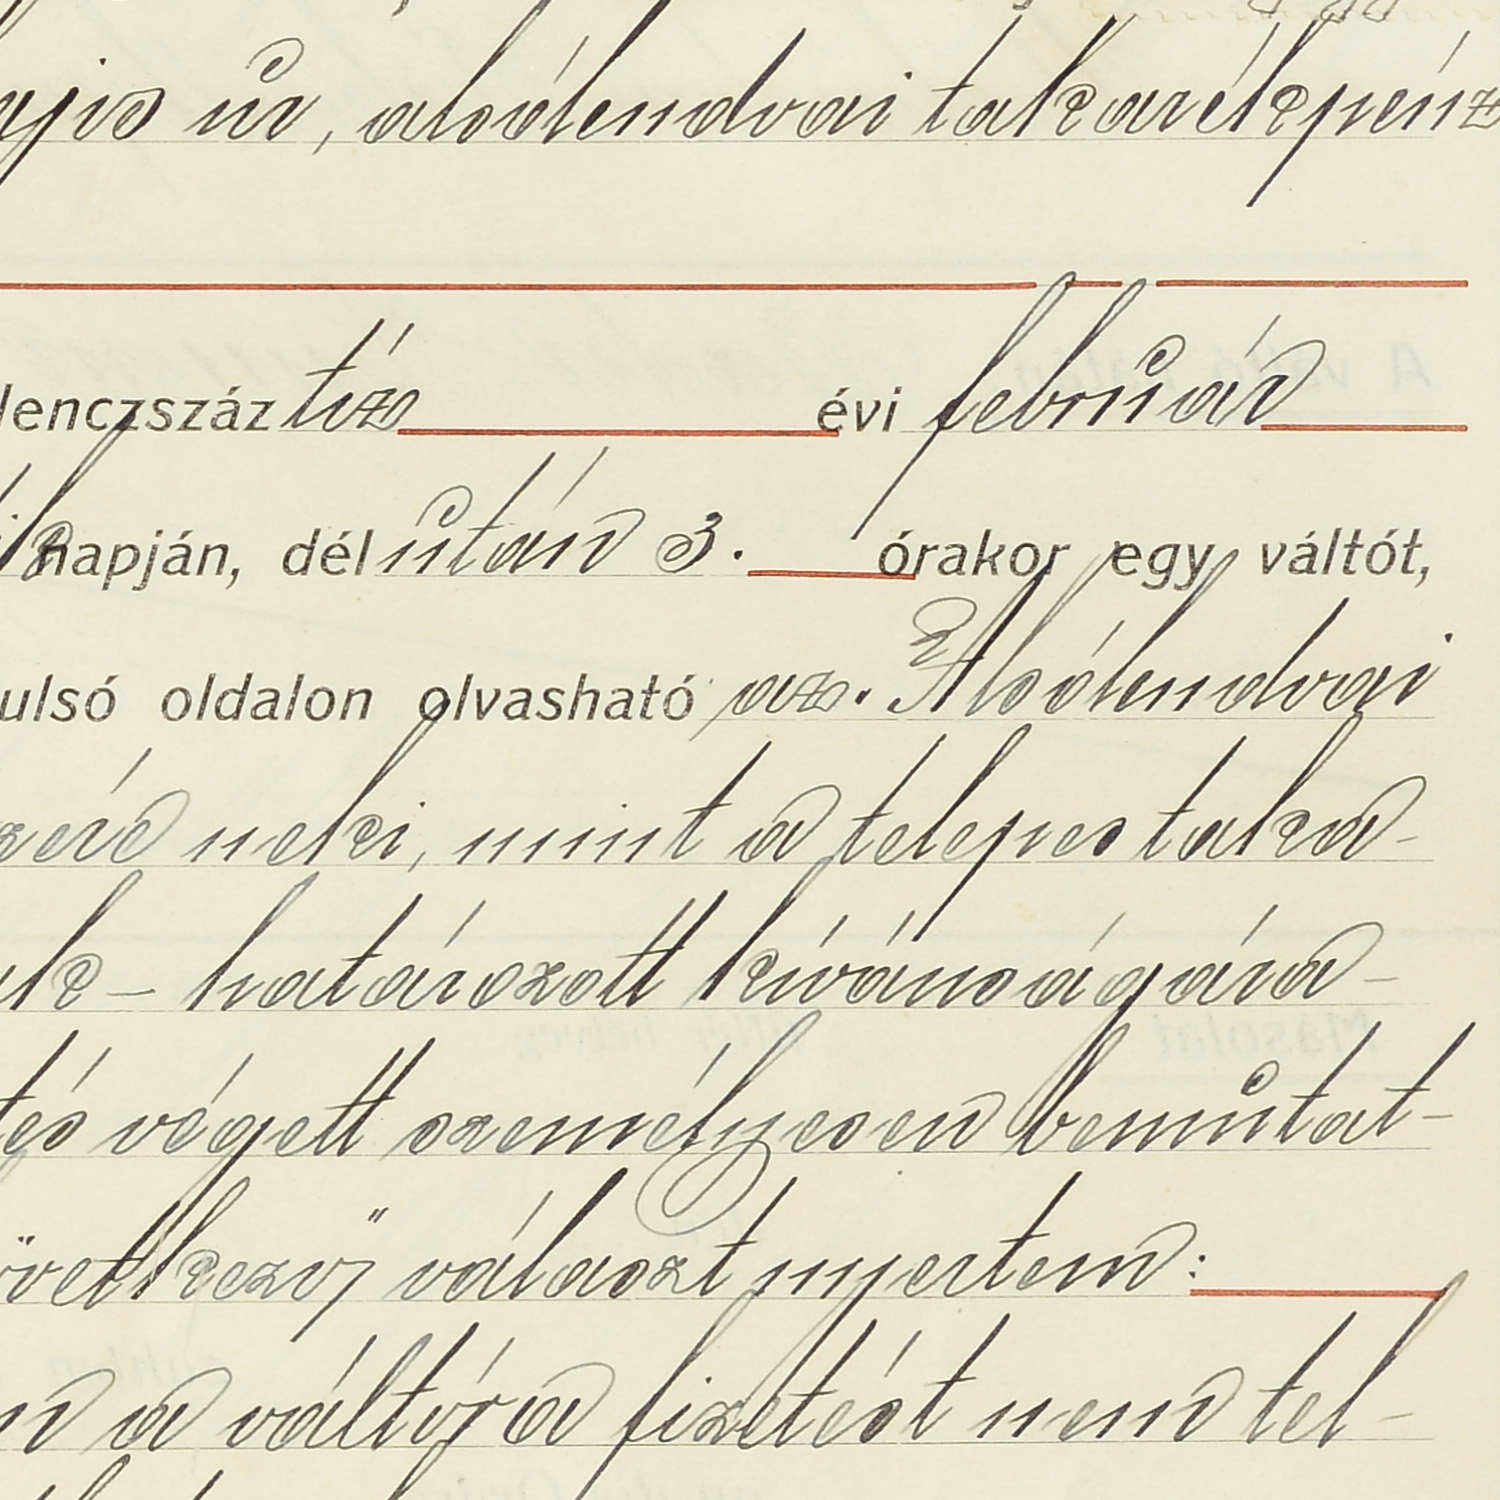 ajis úr, alsólendvai takarékpénz
lenczszáz tíz évi február
napján, dél után 3. órakor egy váltót,
tulsó oldalon olvasható az. Alsólendvai
neki, mint a telepes taka-
határozott kívánságára-
végett személyesen bemutat-
övetkező választ nyertem:
a váltóra fizetést nem tel-